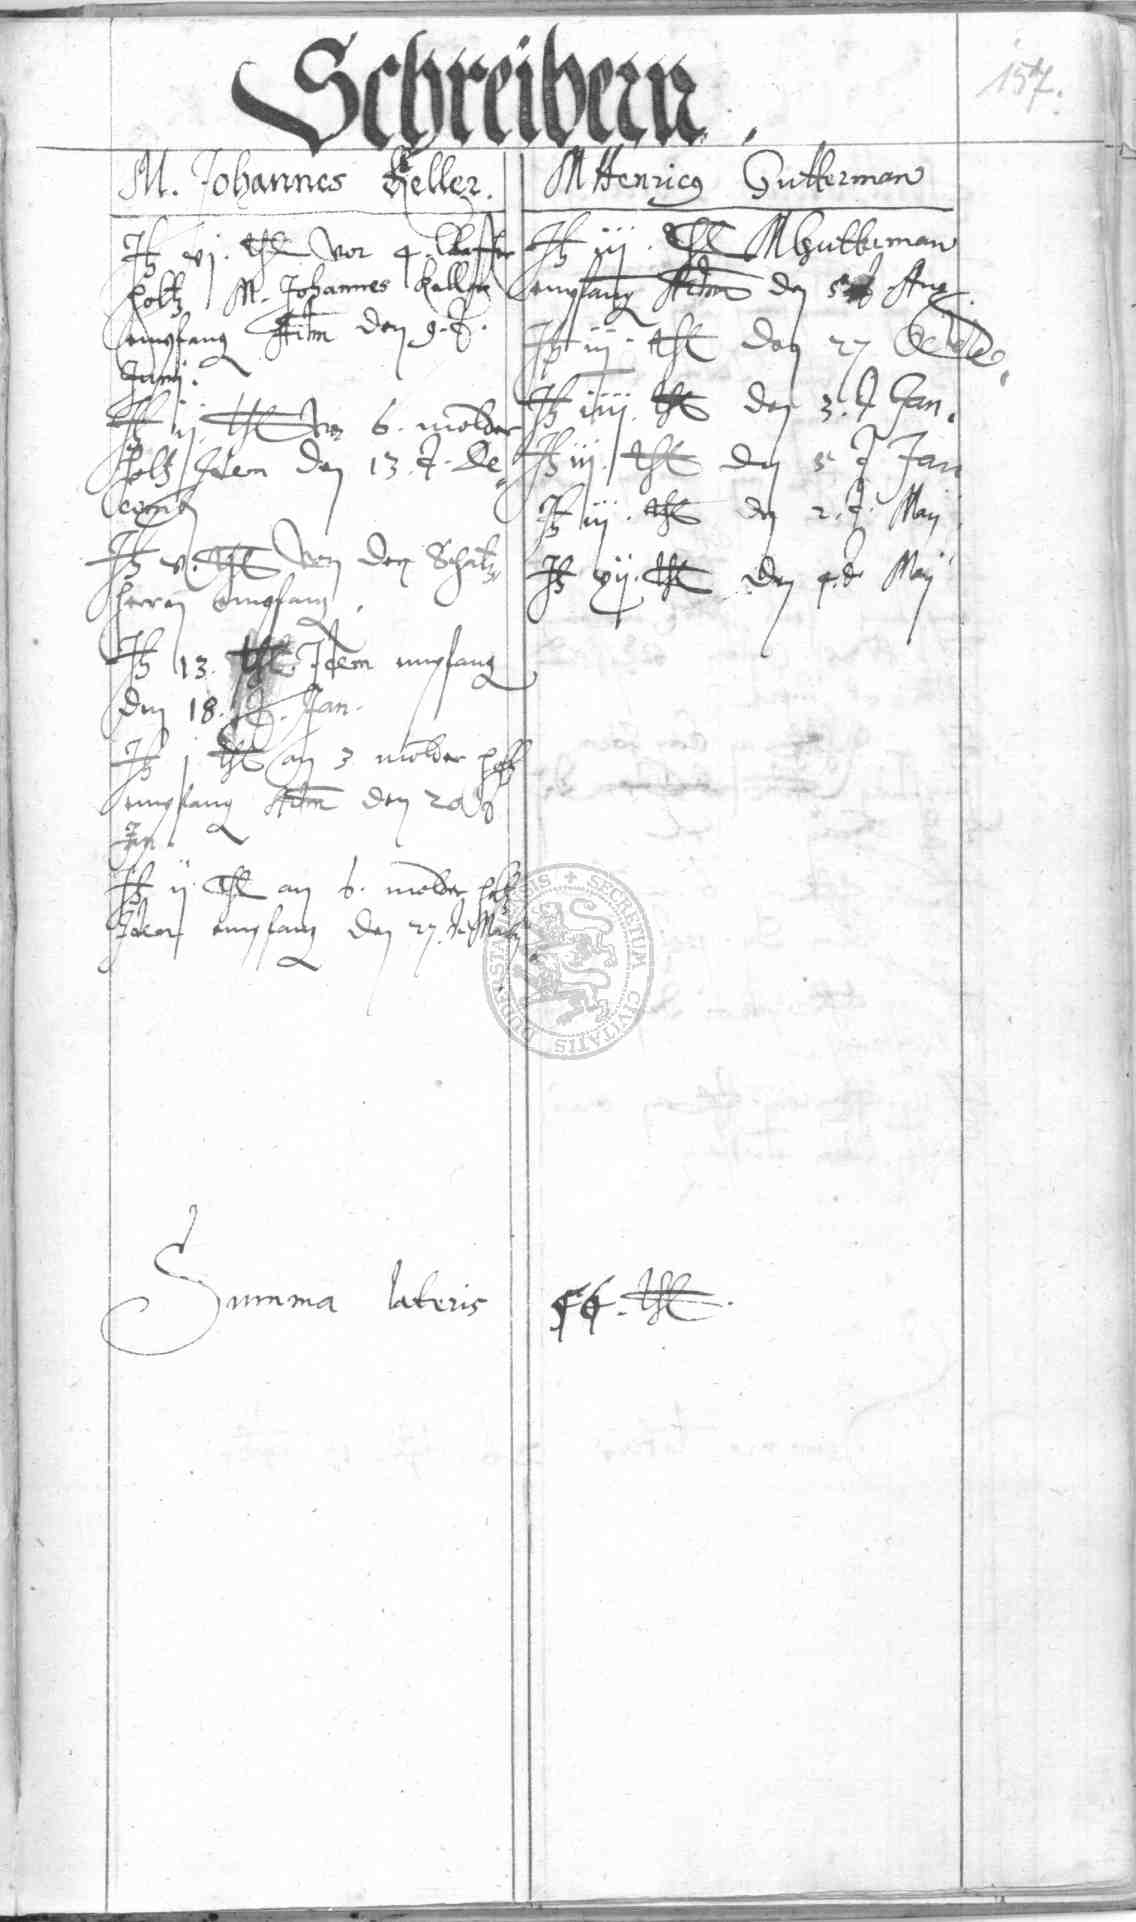 157.
Schreibern.
M. Johannes Keller.
It vj. thl vor 4. klaffter
holtz M. Johannes Keller
empfang Actum den 9. d.
Junij.
It ij. thl vor 6. molder
holtz Idem den 13. d. De
cemb
It v thl von den Schatz
herren empfang.
It 13. thl. Idem empfang
den 18. d. Jan.
It j thl an 3 molder holtz
empfang Actum den 20 d
Jan.
It ij. thl an 6. molder holtz
Idem empfang den 27. d. Martij
M Henricus Gutterman
It iij. thl M Gutterman
empfang Actum den 5 Aug.
It iij. thl den 27
It iiij. thl den 3. d Jan.
It iij. thl den 5 d Jan
It iij. thl den 2. d. Maij
It xij. thl den 4. d. Maij
Summa lateris 54. thl.
SECRETUM CIVITATIS DUDERSTADENSIS